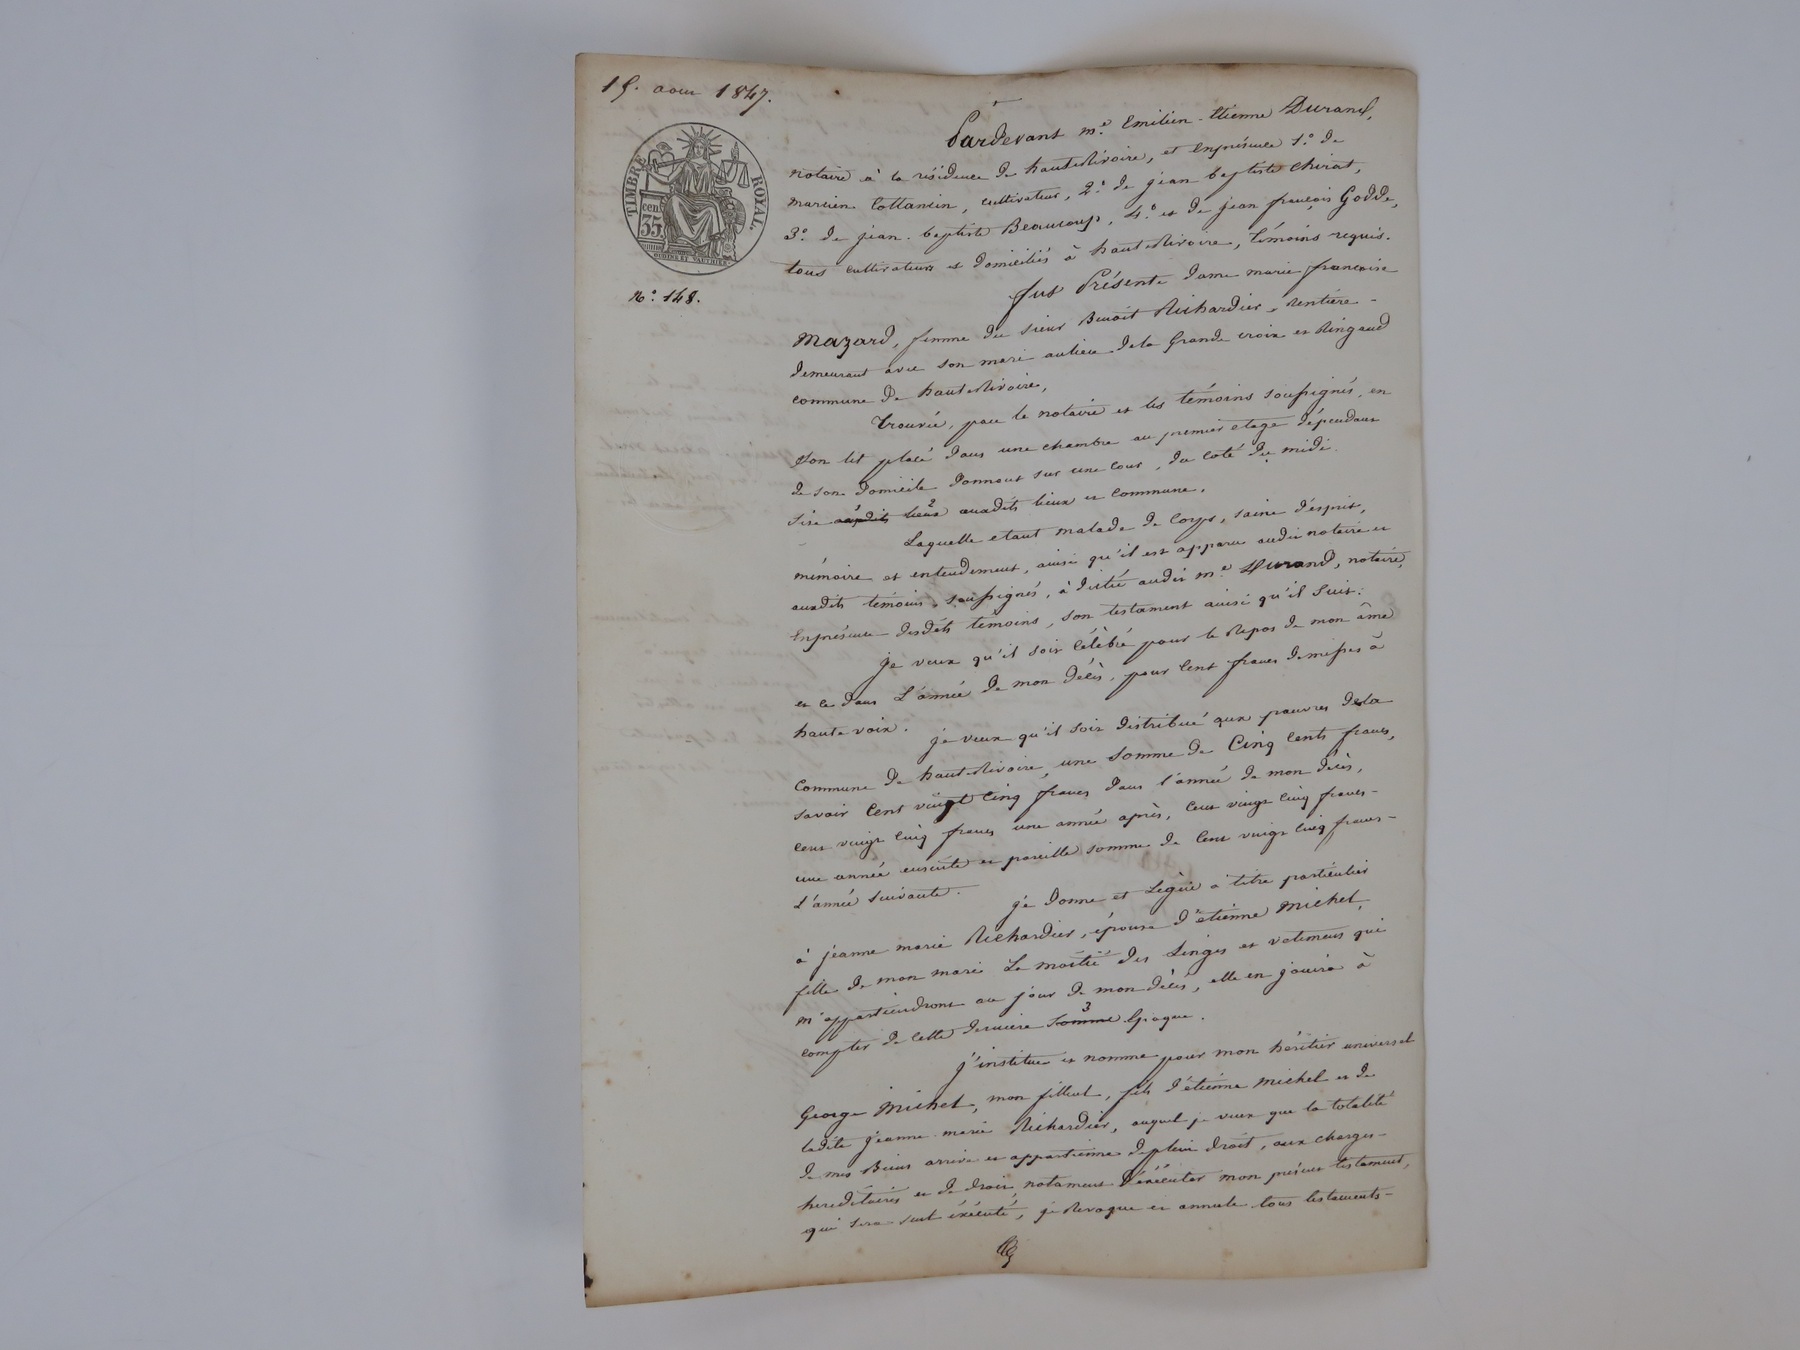 15. aout 1847.
TIMBRE ROYAL.
35 cen.
OUDINE ET VAUTHIER.
N.° 148.
Pardevant m.e Emilien-Etienne Durand,
notaire à la résidence de hauterivoire, et enprésence 1.° de
marcien Cottancin, cultivateur, 2.° de jean baptiste Chirat,
3.° de jean-baptiste Beaucoup, 4.° et de jean françois Godde,
tous cultivateurs et domiciliés à hauterivoire, témoins requis.
fut Présente dame marie françoise
Mazard, femme du sieur Benoît Richardier, Rentière
demeurant avec son mari aulieu dela Grande croix et Ringaud
commune de hauterivoire,
trouvée, par le notaire et les témoins soussignés, en
son lit placé dans une chambre au premier etage dépendant
de son domicile donnant sur une cour, du coté du midi.
sise auxdits lieux auxdits lieux et commune.
Laquelle etant malade de Corps, saine d'esprit,
mémoire et entendement, ainsi qu'il est apparu audit notaire et
auxdits témoins, soussignés, à dicté audit m.e Durand, notaire,
Enprésence desdits témoins, son testament ainsi qu'il suit:
je veux qu'il soit Célébré pour le Repos de mon âme
et ce dans L'année de mon décès, pour Cent francs demesses à
haute voix.
je veux qu'il soit distribué aux pauvres dela
Commune de hauterivoire, une somme de Cinq Cents francs,
savoir Cent vingt Cinq francs dans l'année de mon décès,
Cent vingt Cinq francs une année après, Cent vingt Cinq francs
une année ensuite et pareille somme de Cent vingt Cinq francs
L'année suivante.
je donne et Lègue à titre particulier
à jeanne marie Richardier, épouse d'étienne Michel,
fille de mon mari La moitié des Linges et vetements qui
m'appartiendront au jour de mon décès, elle en jouira à
compter de Cette dernière somme Epoque.
j'institue et nomme pour mon héritier universel
George Michel, mon filleul, fils d'étienne Michel et de
ladite jeanne-marie Richardier, auquel je veux que la totalité
de mes Biens arrive et appartienne deplein droit, aux charges
hereditaires et de droit, notament d'éxécuter mon présent testament,
qui sera seul éxécuté, je Revoque et annule tous testaments